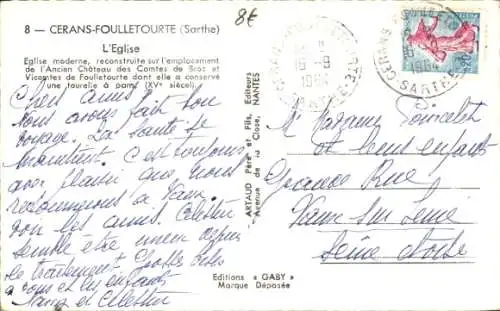 8 — CERANS-FOULLETOURTE (Sarthe)
8€
L'Eglise
Eglise moderne, reconstruite sur l'emplacement
de l'Ancien Château des Comtes de Broc et
Vicomtes de Foulletourte dont elle a conservé
une tourelle à pans (XVe siècle).
Chers amis
Nous avons fait bon
voyage. La santé se
maintient. C'est toujours
avec plaisir que nous
retournerons à Vaux
les amis. Célestin
semble être mieux depuis
le traitement
à vous et les enfants
et Célestin
ARTAUD Père et Fils, Editeurs
Avenue de la Close, NANTES
Editions « GABY »
Marque Déposée
16 -9
CERANS
SARTHE
Mr Madame
et leurs enfants
Grande Rue
Vaux sur Seine
Seine et Oise